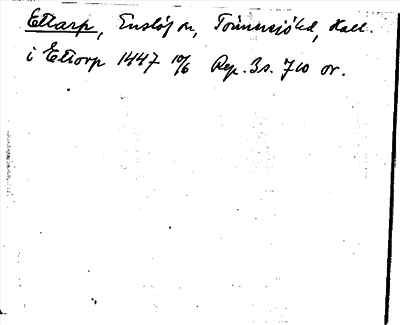 Ettarp, Enslöf sn, Tönnersjö hd, Hall.
i Ettorp 1447 10/6 Rep. 3 s. 710 or.